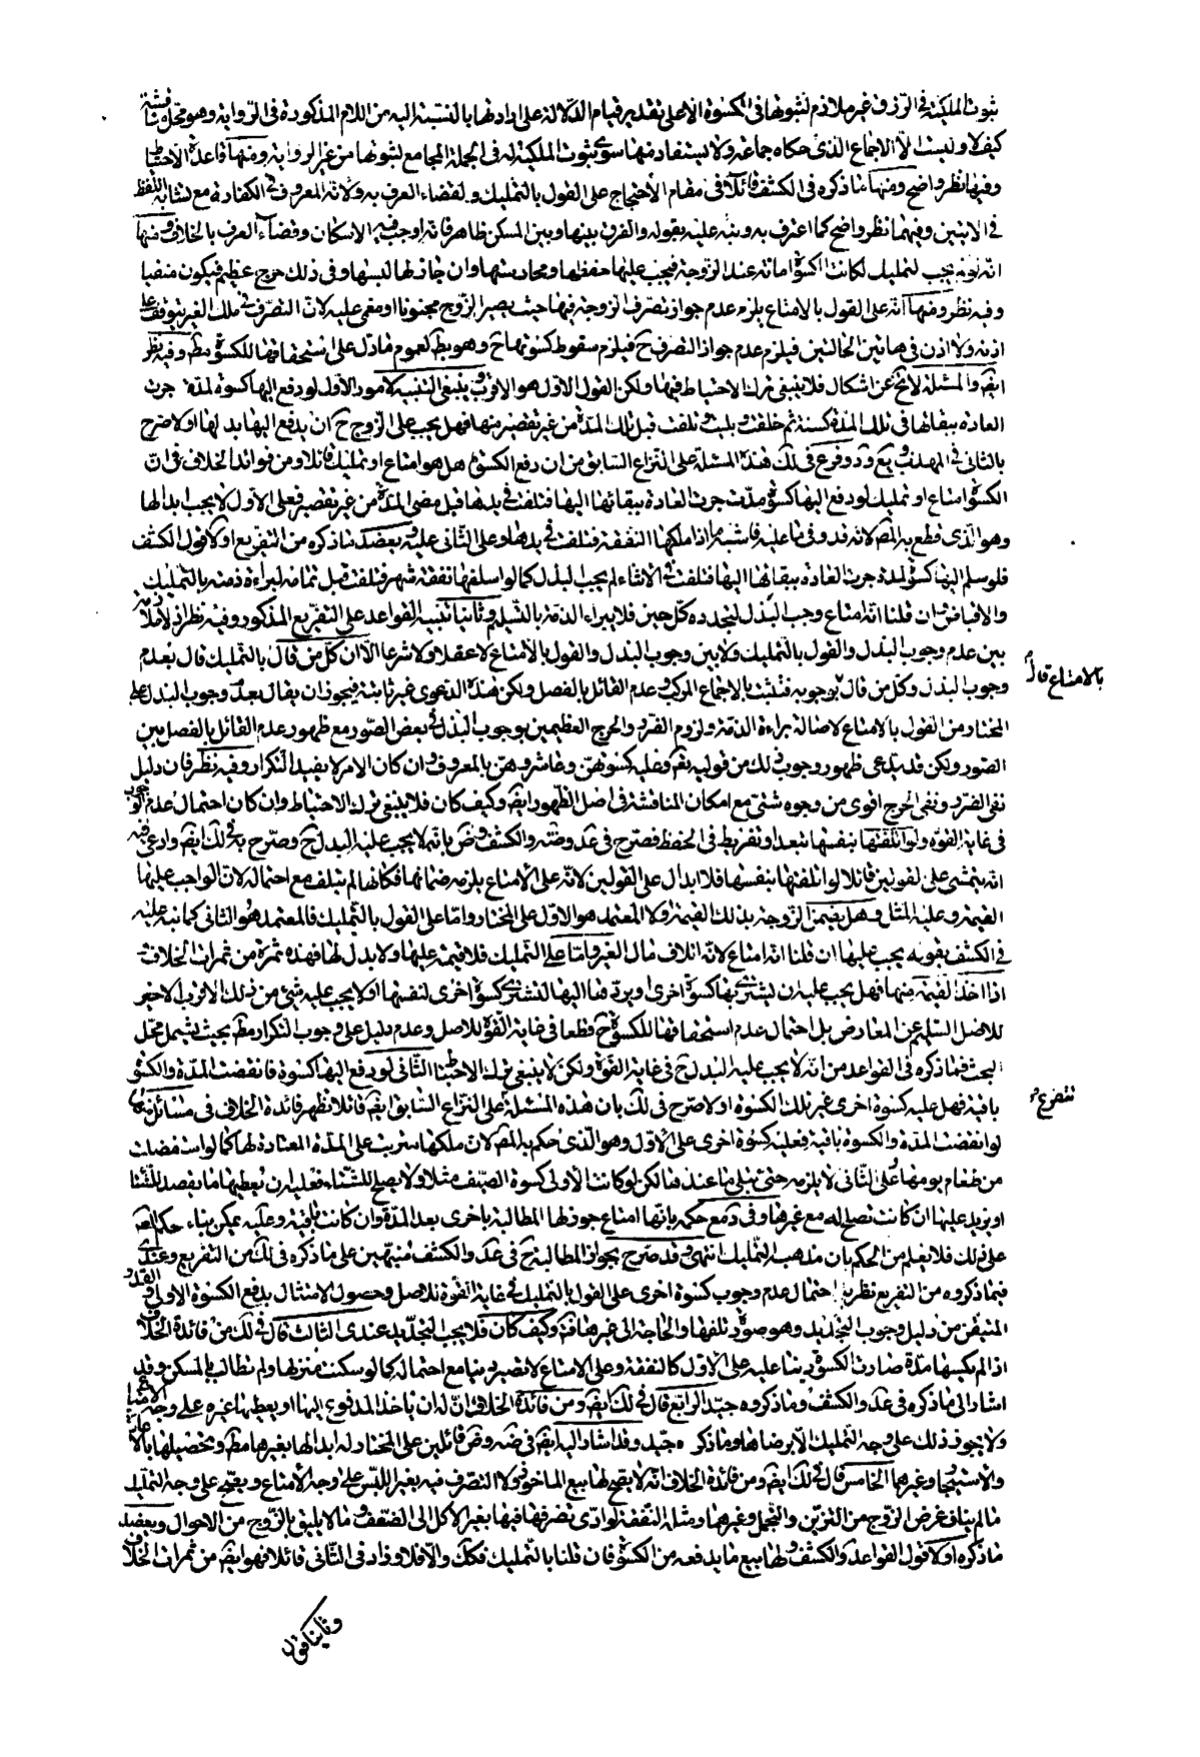 ثبوت الملكية فى الرزق غير ملازم لثبوتها فى الكسوة الا على تقدير قيام الدلالة على ارادتها بالنسبة اليه من اللام المذكورة فى الرواية وهو محل مناقشة
كيف لا وليست الا الاجماع الذى حكاه جماعة ولا يستفاد منها سوى ثبوت الملكية له فى الجملة المجامع لثبوتها من غير الرواية ومنها قاعدة الاحتياط
وفيها نظر واضح ومنها ما ذكره فى الكشف قائلا فى مقام الاحتجاج على القول بالتمليك ولقضاء العرف به ولانه المعروف فى الكفارة مع تشابه اللفظ
فى الايتين وفيهما نظر واضح كما اعترف به ونبه عليه بقوله والفرق بينها وبين المسكن ظاهر فانه اوجب فيه الاسكان وقضاء العرف بالخلاف ومنها
انه لو لم يجب التمليك لكانت الكسوة امانة عند الزوجة فيجب عليها حفظها ومحارستها وان جاز لها لبسها وفى ذلك حرج عظيم فيكون منفيا
وفيه نظر ومنها انه على القول بالامتاع يلزم عدم جواز تصرف الزوجة فيها حيث يصير الزوج مجنونا او مغمى عليه لان التصرف فى ملك الغير يتوقف على
اذنه ولا اذن فى هاتين الحالتين فيلزم عدم جواز التصرف ح فيلزم سقوط كسوتها ح وهو بط لعموم ما دل على استحقاقها للكسوة مط وفيه نظر
ايضا والمسئلة لا تخ عن اشكال فلا ينبغى ترك الاحتياط فيها ولكن القول الاول هو الاقوى وينبغى التنبيه لامور الاول لو دفع اليها كسوة لمدة جرت
العادة ببقائها فى تلك المدة كسنة ثم خلقت وبليت وتلفت قبل تلك المدة من غير تقصير منها فهل يجب على الزوج ح ان يدفع اليها بدلها او لا صرح
بالثانى فى المهذب و يع وعد وفرع فى لك هذه المسئلة على النزاع السابق من ان دفع الكسوة هل هو امتاع او تمليك قائلا ومن فوائد الخلاف فى ان
الكسوة امتاع او تمليك لو دفع اليها كسوة مدة جرت العادة ببقائها اليها فتلفت فى يدها قبل مضى المدة من غير تقصير فعلى الاول لا يجب ابدالها
وهو الذى قطع به المص لانه قد وفى ما عليه فاشبه ما اذا ملكها النفقة فتلفت فى يدها وعلى الثانى عليه ويعضد ما ذكره من التفريع اولا قول الكشف
فلو سلم اليها كسوة لمدة جرت العادة ببقائها اليها فتلفت فى الاثناء لم يجب البدل كما لو اسلفها نفقة شهر فتلفت قبل تمامه لبراءة ذمته بالتمليك
والاقباض وان قلنا انه امتاع وجب البدل لتجدده كل حين فلا يبراء الذمة بالتسليم وثانيا تنبيه القواعد على التفريع المذكور وفيه نظر اذ لا ملازمة
بين عدم وجوب البدل والقول بالتمليك ولا بين وجوب البدل والقول بالامتاع لا عقلا ولا شرعا الا ان كل من قال بالتمليك قال بعدم
وجوب البدل وكل من قال بوجوبه فتثبت بالاجماع المركب وعدم القائل بالفصل ولكن هذه الدعوى غير ثابتة فيجوز ان يقال بعدم وجوب البدل على
بالامتاع قال
المختار من القول بالامتاع لاصالة براءة الذمة ولزوم الضرر والحرج العظيمين بوجوب البدل فى بعض الصور مع ظهور عدم القائل بالفصل بين
الصور ولكن قد يدعى ظهور وجوب ذلك من قوليه تعالى وعليه كسوتهن وعاشروهن بالمعروف وان كان الامر لا يفيد التكرار وفيه نظر فان دليل
نفى الضرر ونفى الحرج اقوى من وجوه شتى مع امكان المناقشة فى اصل الظهور ايضا وكيف كان فلا ينبغى ترك الاحتياط وان كان احتمال عدم الوجوب
فى غاية القوة ولو اتلفتها بنفسها بتعد او تفريط فى الحفظ فصرح فى عد وضه والكشف وض بانه لا يجب عليه البدل ح وصرح به فى لك ايضا وادعى فيه
انه يتمشى على القولين قائلا لو اتلفتها بنفسها فلا ابدال على القولين لانه على الامتاع يلزمه ضمانها فكانها لم تتلف مع احتماله لان الواجب عليها
القيمة وعليه المثل وهل يضمن الزوجة بذلك القيمة او لا المعتمد هو الاول على المختار واما على القول بالتمليك فالمعتمد هو الثانى كما نبه عليه
فى الكشف بقوله يجب عليها ان قلنا انه امتاع لانه اتلاف مال الغير واما على التمليك فلا قيمة عليها ولا بدل لها فهذه ثمرة من ثمرات الخلاف
اذا اخذ القيمة منها فهل يجب عليه ان يشترى بها كسوة اخرى او يردها اليها لتشترى كسوة اخرى لنفسها او لا يجب عليه شئ من ذلك الاقرب الاخير
للاصل السليم عن المعارض بل احتمال عدم استحقاقها للكسوة ح قطعا فى غاية القوة للاصل وعدم دليل على وجوب التكرار مط بحيث يشمل محل
البحث فما ذكره فى القواعد من انه لا يجب عليه البدل ح فى غاية القوة ولكن لا ينبغى ترك الاحتياط الثانى لو دفع اليها كسوة فانقضت المدة والكسوة
باقية فهل عليه كسوة اخرى غير تلك الكسوة او لا صرح فى لك بان هذه المسئلة على النزاع السابق ايضا قائلا تظهر فائدة الخلاف فى مسائل منها
تتفرع
لو انقضت المدة والكسوة باقية فعليه كسوة اخرى على الاول وهو الذى حكم به المص لان ملكها مترتب على المدة المعتادة لها كما لو استفضلت
من طعام يومها وعلى الثانى لا يلزمه حتى تبلى ما عندها لكن لو كانت الاولى كسوة الصيف مثلا ولا يصلح للشتاء فعليه ان يعطيها ما يقصد للشتاء
او يزيد عليها ان كانت تصلح له مع غيرها وفى مع حكمه بانها امتاع جوز لها المطالبة باخرى بعد المدة وان كانت باقية وعليه يمكن بناء حكم المص
على ذلك فلا يعلم من الحكم بان مذهب التمليك انتهى وقد صرح بجواز المطالبة ح فى عد والكشف منبهين على ما ذكره فى لك من التفريع وعندى
فيما ذكروه من التفريع نظر بل احتمال عدم وجوب كسوة اخرى على القول بالتمليك فى غاية القوة للاصل وحصول الامتثال بدفع الكسوة الاولى والقدر
المتيقن من دليل وجوب التجديد وهو صورة تلفها والحاجة الى غيرها وكيف كان فلا يجب التجديد عندى الثالث قال فى لك من فائدة الخلاف
اذا لم يكسها مدة صارت الكسوة دينا عليه على الاول كالنفقة وعلى الامتاع لا تصير دينا مع احتماله كما لو سكنت منزلها ولم تطالب بالمسكن وقد
اشار الى ما ذكره فى عد والكشف وما ذكروه جيد الرابع قال فى لك ايضا ومن فائدة الخلاف ان له ان ياخذ المدفوع اليها او يعطيها غيره على وجه الامتاع
ولا يجوز ذلك على وجه التمليك الا برضاها وما ذكره جيد وقد اشار اليه ايضا فى ضه وض قائلين على المختار له ابدالها بغيرها مط وتحصيلها بالاعارة
والاستيجار وغيرهما الخامس قال فى لك ايضا ومن فائدة الخلاف انه لا يصح لها بيع الماخوذ ولا التصرف فيه بغير اللبس على وجه الامتاع ويصح على وجه التمليك
ما لم يناف غرض الزوج من التزين والتجمل وغيرهما ومثله النفقة لو ادى تصرفها فيها بغير الاكل الى الضعف وما لا يليق بالزوج من الاحوال ويعضد
ما ذكره اولا قول القواعد والكشف ولها بيع ما يدفعه من الكسوة فان قلنا بالتمليك فكك والا فلا وزاد فى الثانى قائلا فهو ايضا من ثمرات الخلاف